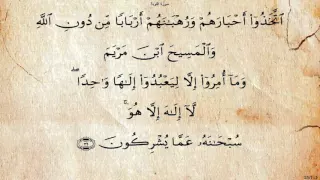 ٱتَّخَذُوٓا۟ أَحْبَارَهُمْ وَرُهْبَـٰنَهُمْ أَرْبَابًا مِّن دُونِ ٱللَّهِ
وَٱلْمَسِيحَ ٱبْنَ مَرْيَمَ
وَمَآ أُمِرُوٓا۟ إِلَّا لِيَعْبُدُوٓا۟ إِلَـٰهًا وَٰحِدًا ۖ
لَّآ إِلَـٰهَ إِلَّا هُوَ ۚ
سُبْحَـٰنَهُۥ عَمَّا يُشْرِكُونَ ٣١